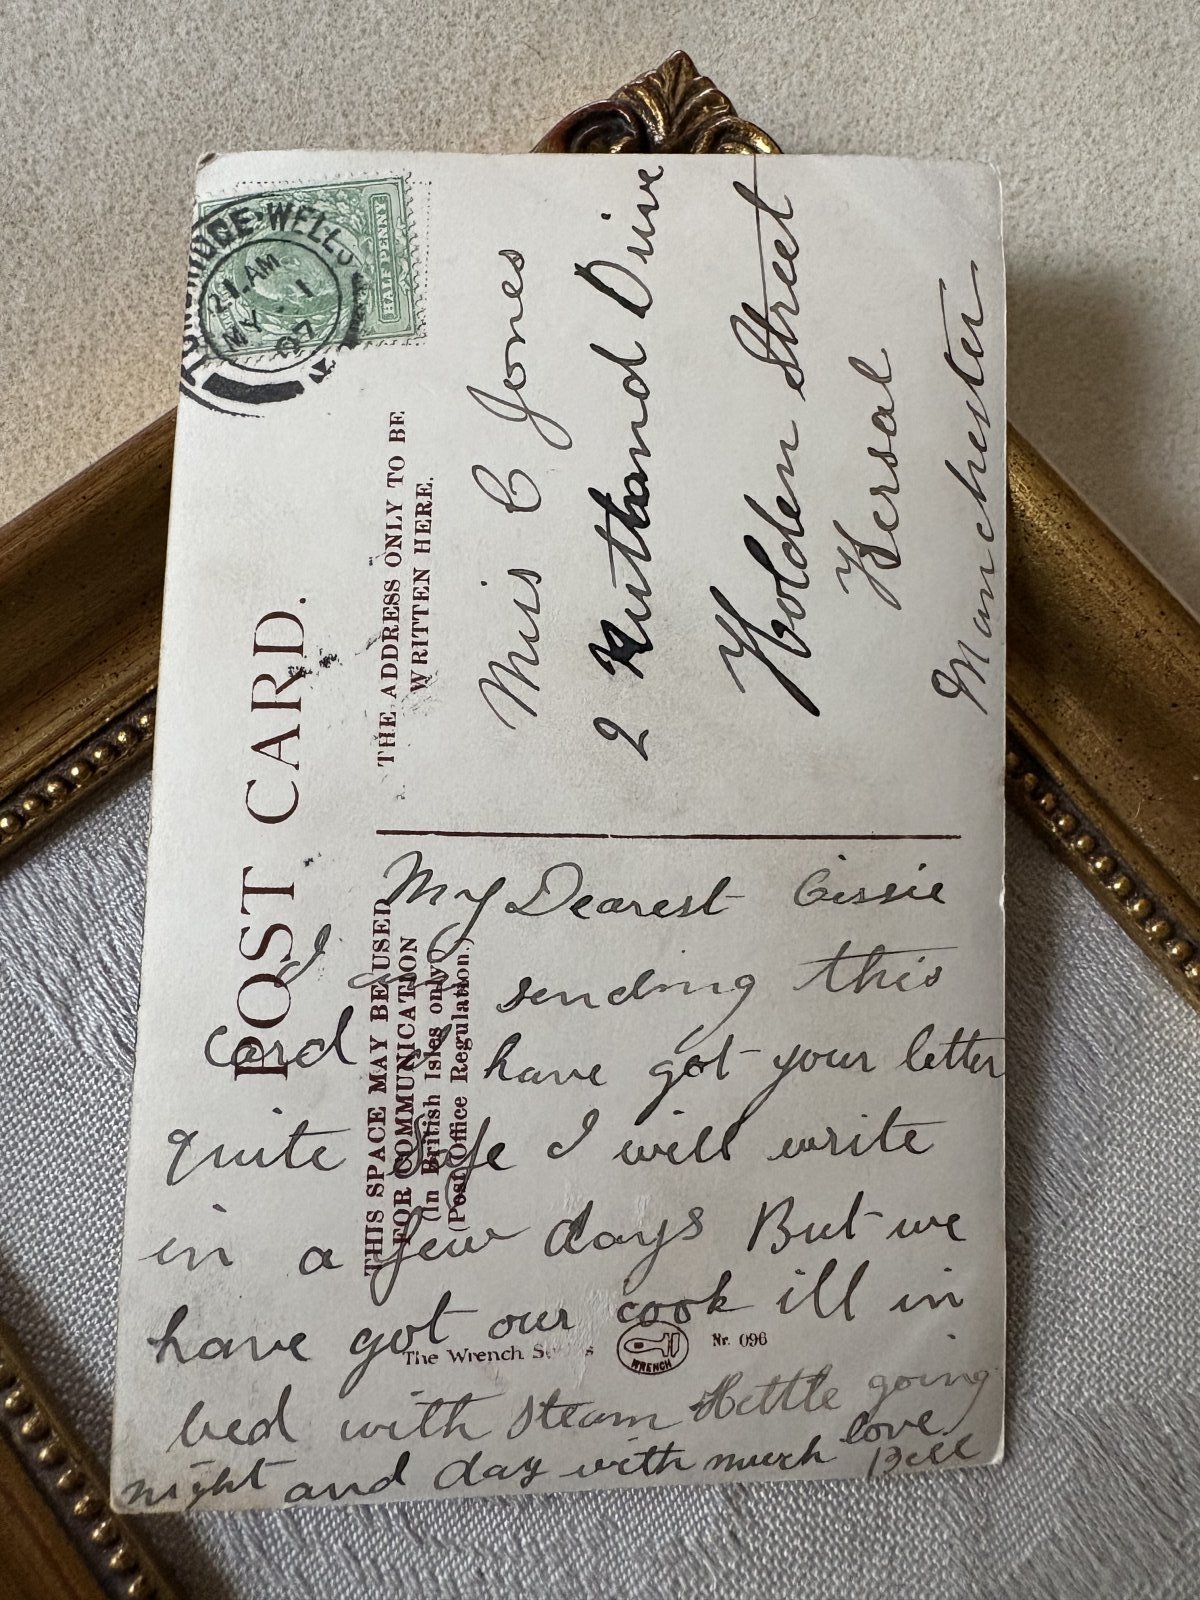 POST CARD.
THE ADDRESS ONLY TO BE
WRITTEN HERE.
THIS SPACE MAY BE USED
FOR COMMUNICATION
(In British Isles only)
(Post Office Regulation.)
HALF PENNY
TUNBRIDGE·WELLS
AM
MY 1
07
Miss C Jones
2 Ruthand Drive
Holden Street
Kersal
Manchester
My Dearest Cissie
I am sending this
card I have got your letter
quite safe I will write
in a few days But we
have got our cook ill in
bed with steam Kettle going
night and day with much love
Bell
The Wrench Series
WRENCH
Nr. 096